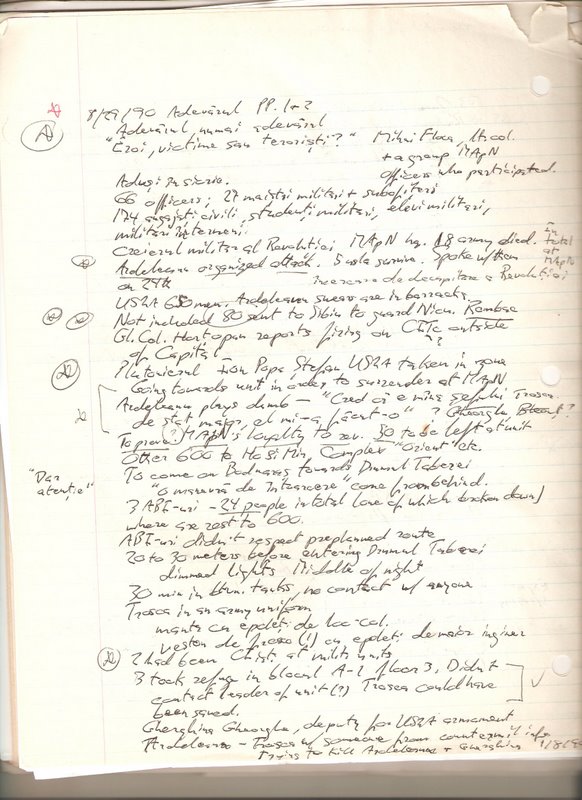 8/29/90 Adevărul PP. 1+2
A
Adevărul, numai adevărul
"Eroi, victime sau teroriști?" Mihai Floca, lt.col.
+ a group MApN
officers who participated.
Aduși în sicrie.
66 officers; 27 maiștri militari + subofițeri
174 angajați civili, studenți militari, elevi militari,
militari în termen.
Creierul militar al Revoluției MApN hq. 18 army died.
in total at MApN
Ardeleanu organized attack. 5 usla survive. Spoke w/them
on 24th încercarea de decapitare a Revoluției
USLA 650 men. Ardeleanu swears are in barracks.
Not included 80 sent to Sibiu to guard Nicu. Rombac
Lt. Col. Hortopan reports firing on outside
of Capital ?
Plutonierul Ion Popa Stefan USLA taken in zone
Going towards unit in order to surrender at MApN
Ardeleanu plays dumb - "Cred că e mîna șefului Trosca
de stat major, el mi-a făcut-o" ? Gheorghe ?
To prove (?) MApN's loyalty to rev. 50 to be left at unit
Other 600 to Ho Și Min, Complex "Orient" etc.
"Dar
atenție"
To come on Bodnaraș towards Drumul Taberei
"o manevră de întoarcere" come from behind.
3 ABI-uri - 24 people in total (one of which broken down)
where are rest to 600.
ABI-uri didn't respect preplanned route
20 to 30 meters before entering Drumul Taberei
dimmed lights Middle of night
30 min in btwn. tanks, no contact w/ anyone
Trosca in an army uniform
manta cu epoleți de loc-col.
veston de (!) cu epoleți de maior inginer
2 had been at milit. units
3 took refuge in blocul A-1 floor 3, Didn't
contact leader of unit (?) Trosca could have
been saved.
Gherghina Gheorghe, deputy for USLA armament
Ardeleanu - Trosca w/ someone from countermil info
trying to kill Ardeleanu + Gherghina